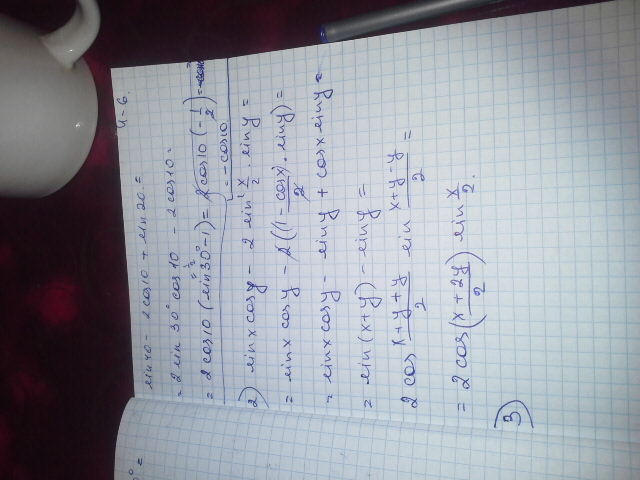 4-6.
sin40 - 2cos10 + sin20 =
= 2 sin 30° cos 10 - 2 cos 10 =
= 2 cos10 (sin30° - 1) = 2 cos10 (-1/2) =
= -cos10
2) sinx cosy - 2 sin² x/2 · siny =
= sinx cosy - 2((1 - cosx)/2 · siny) =
= sinx cosy - siny + cosx siny =
= sin(x+y) - siny =
2 cos (x+y+y)/2 sin (x+y-y)/2 =
= 2 cos((x+2y)/2) sin x/2.
3)